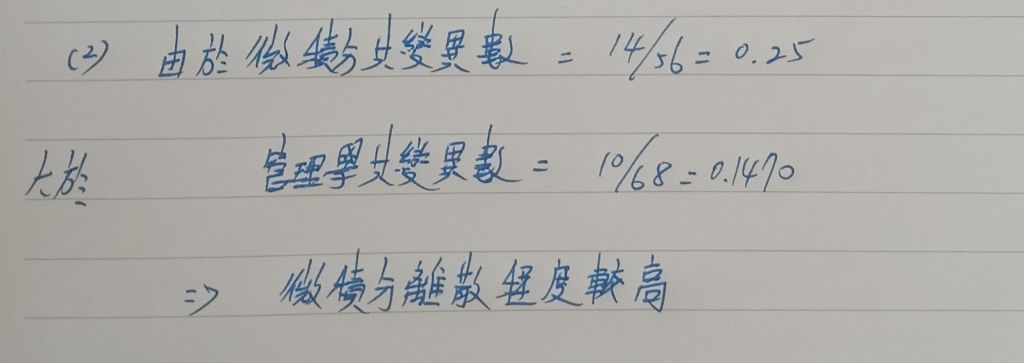 (2) 由於微積分共變異數 = 14/56 = 0.25
大於 管理學共變異數 = 10/68 = 0.1470
=> 微積分離散程度較高